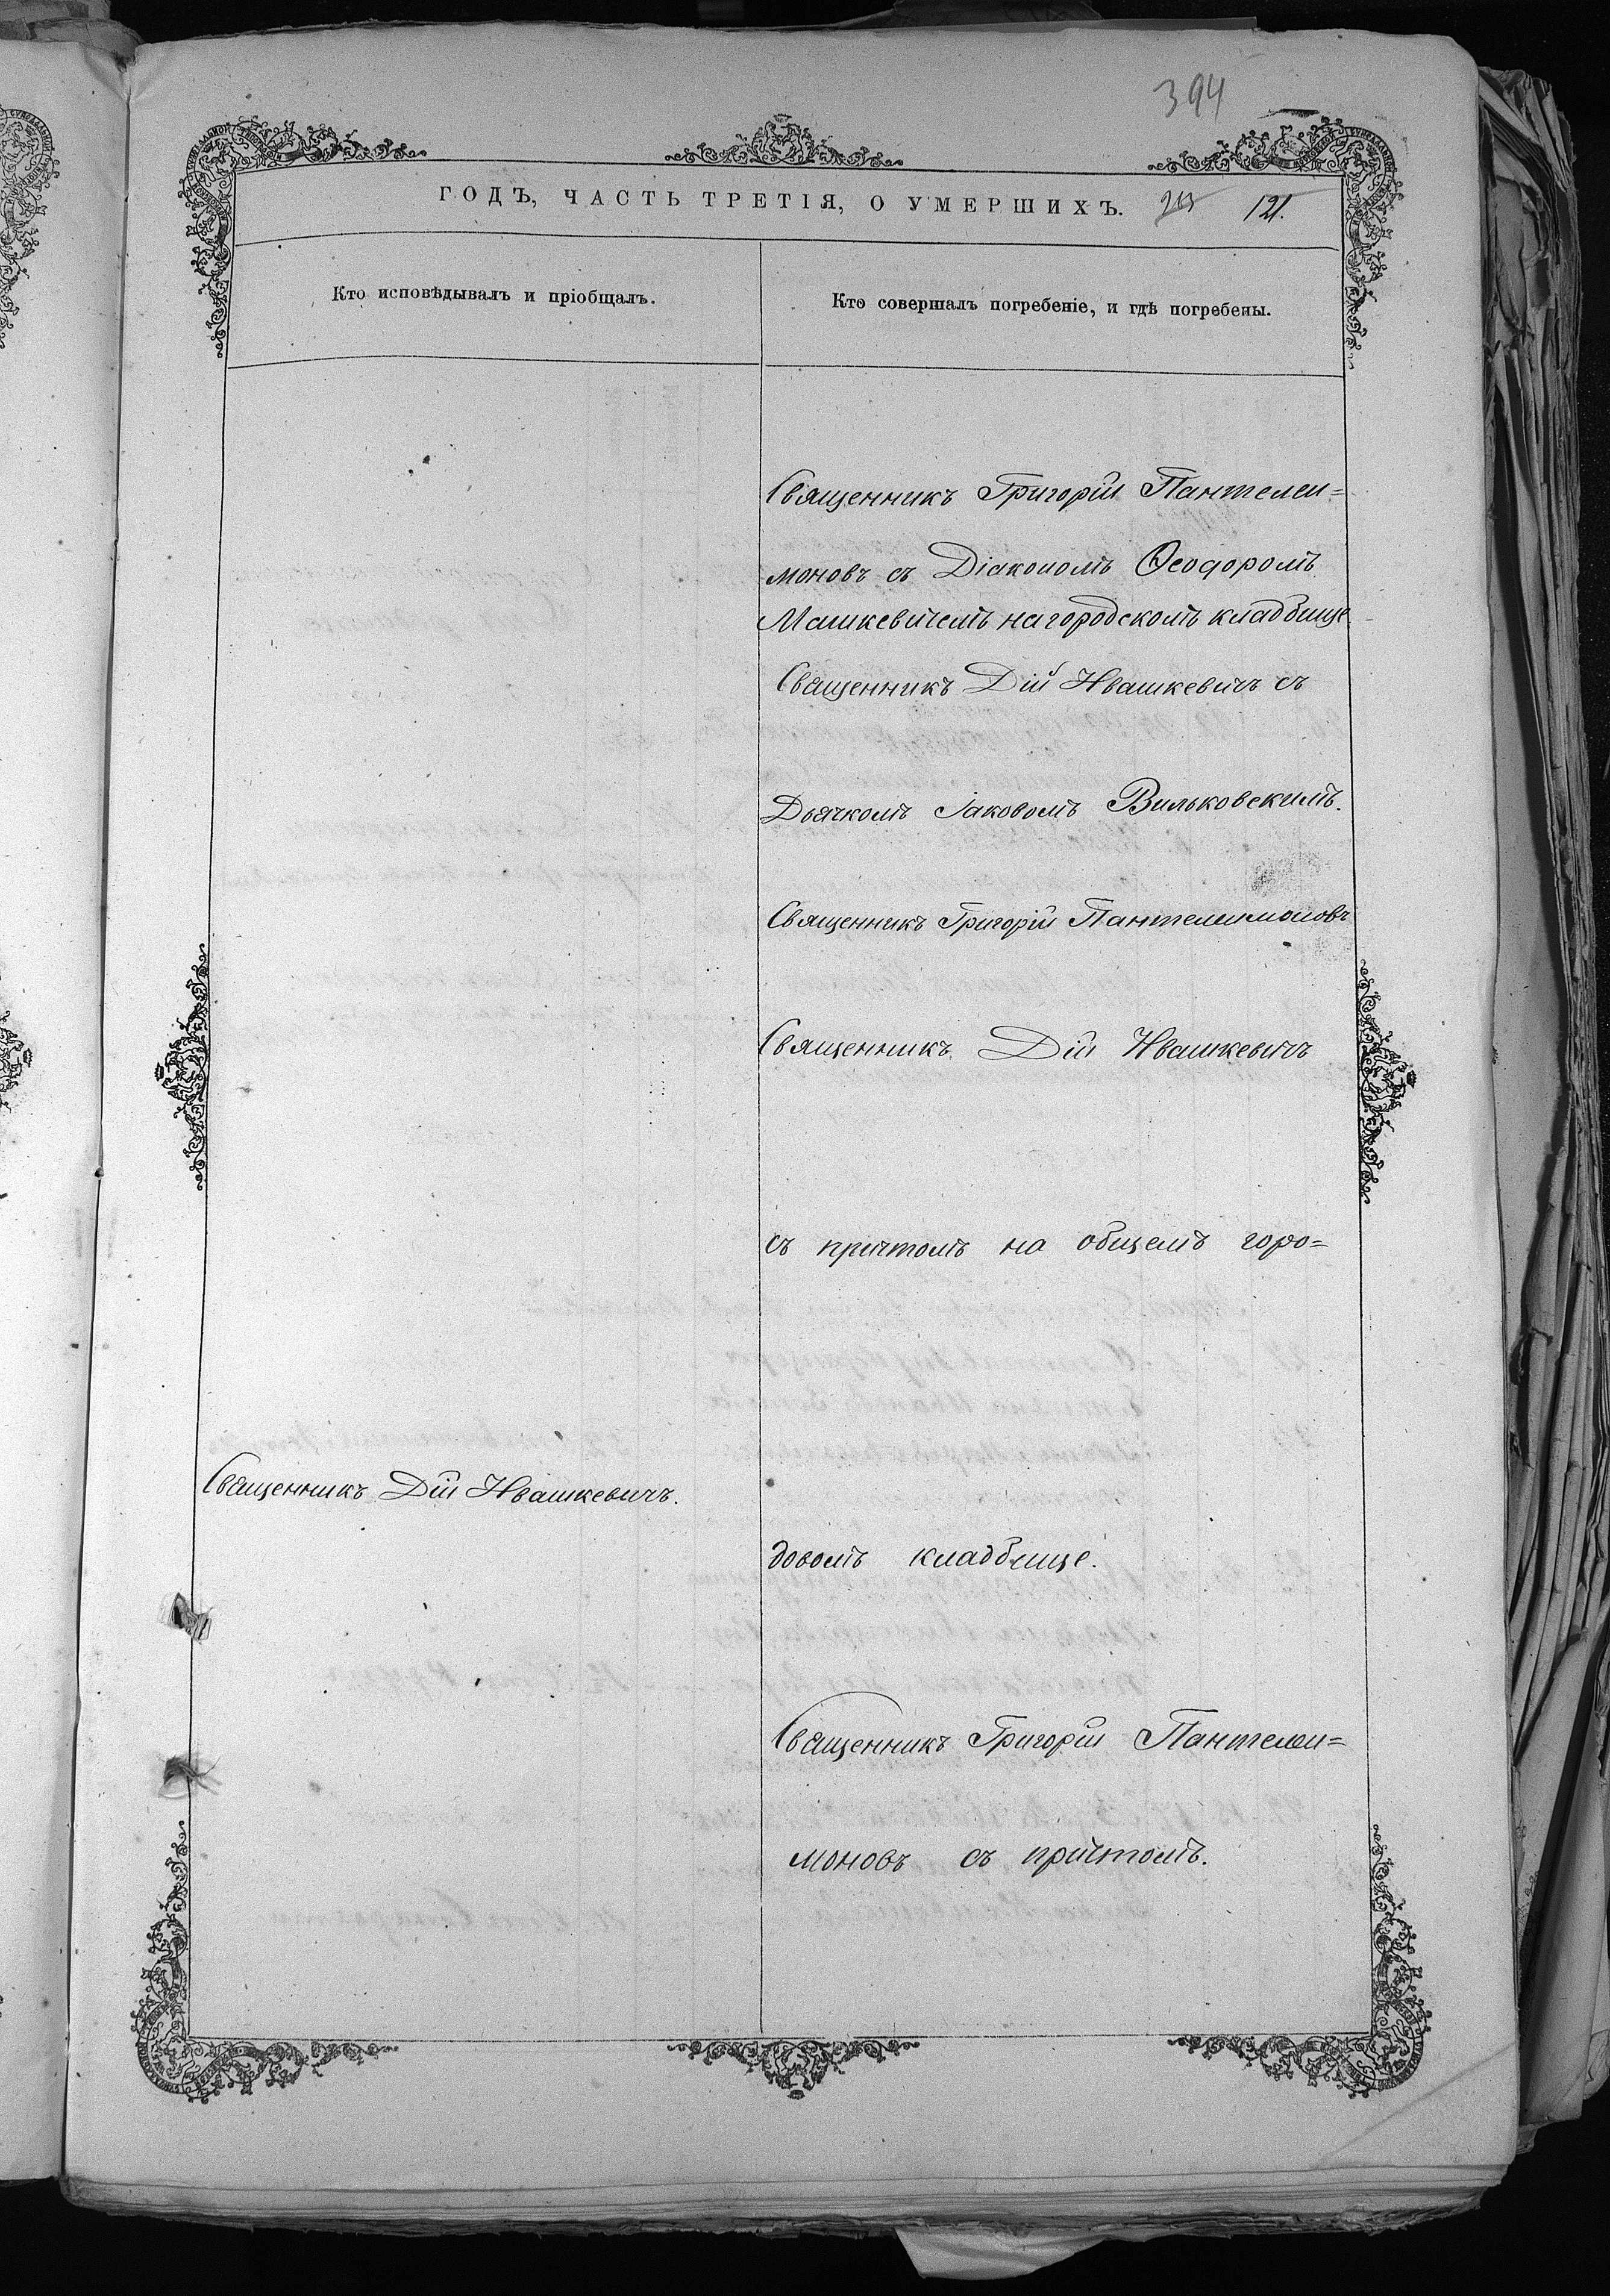 394
ГОДЪ, ЧАСТЬ ТРЕТІЯ, О УМЕРШИХЪ. 121.
Кто исповѣдывалъ и пріобщалъ.
Кто совершалъ погребеніе, и гдѣ погребены.
Священникъ Григорій Пантелеи=
моновъ съ Діакономъ Ѳеодоромъ
Машкевичемъ на городскомъ кладбище
Священникъ Дій Ивашкевичъ съ
Дьячкомъ Іаковомъ Вильковскимъ.
Священникъ Григорій Пантелеимоновъ
Священникъ Дій Ивашкевичъ
съ причтомъ на общемъ горо=
Священникъ Дій Ивашкевичъ.
довомъ кладбище.
Священникъ Григорій Пантелеи=
моновъ съ причтомъ.